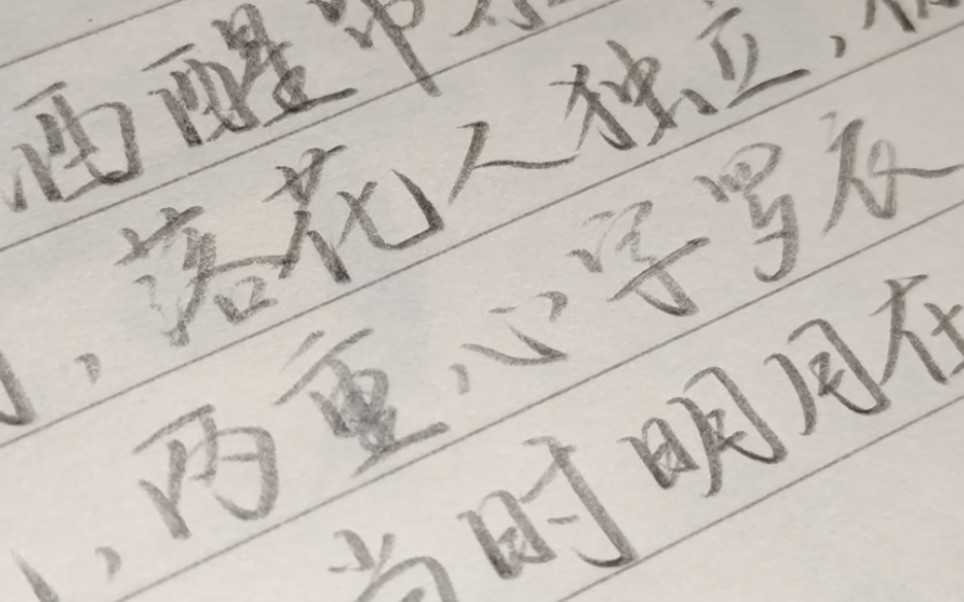 酒醒
，落花人独立，
，两重心字罗衣
当时明月在